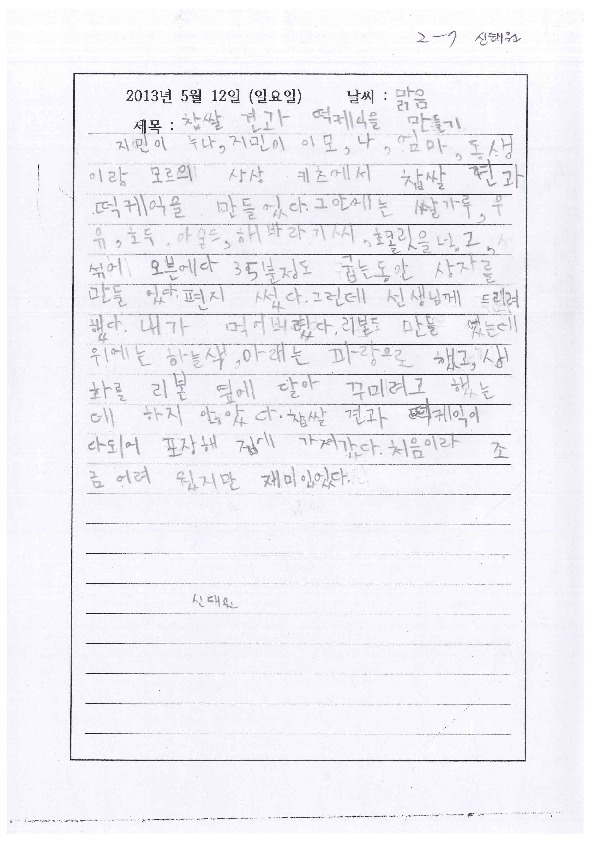 2-7 신태원
2013년 5월 12일 (일요일) 날씨 : 맑음
제목 : 찹쌀 견과 떡케익을 만들기
지민이 누나, 지민이 이모, 나, 엄마, 동생
이랑 모르의 상상 키즈에서 찹쌀 견과
떡케익을 만들었다. 그안에는 쌀가루, 우
유, 호두, 아몬드, 해바라기씨, 초콜릿을 넣고,
섞어 오븐에다 35분정도 굽는동안 상자를
만들었다. 편지 썼다. 그런데 선생님께 드릴려
했다. 내가 먹어버렸다. 리본도 만들었는데
위에는 하늘색, 아래는 파랑으로 했고, 생
화를 리본 옆에 달아 꾸미려고 했는
데 하지 않았다. 찹쌀 견과 떡케익이
다되어 포장해 집에 가져갔다. 처음이라 조
금 어려 웠지만 재미있었다.
신태원